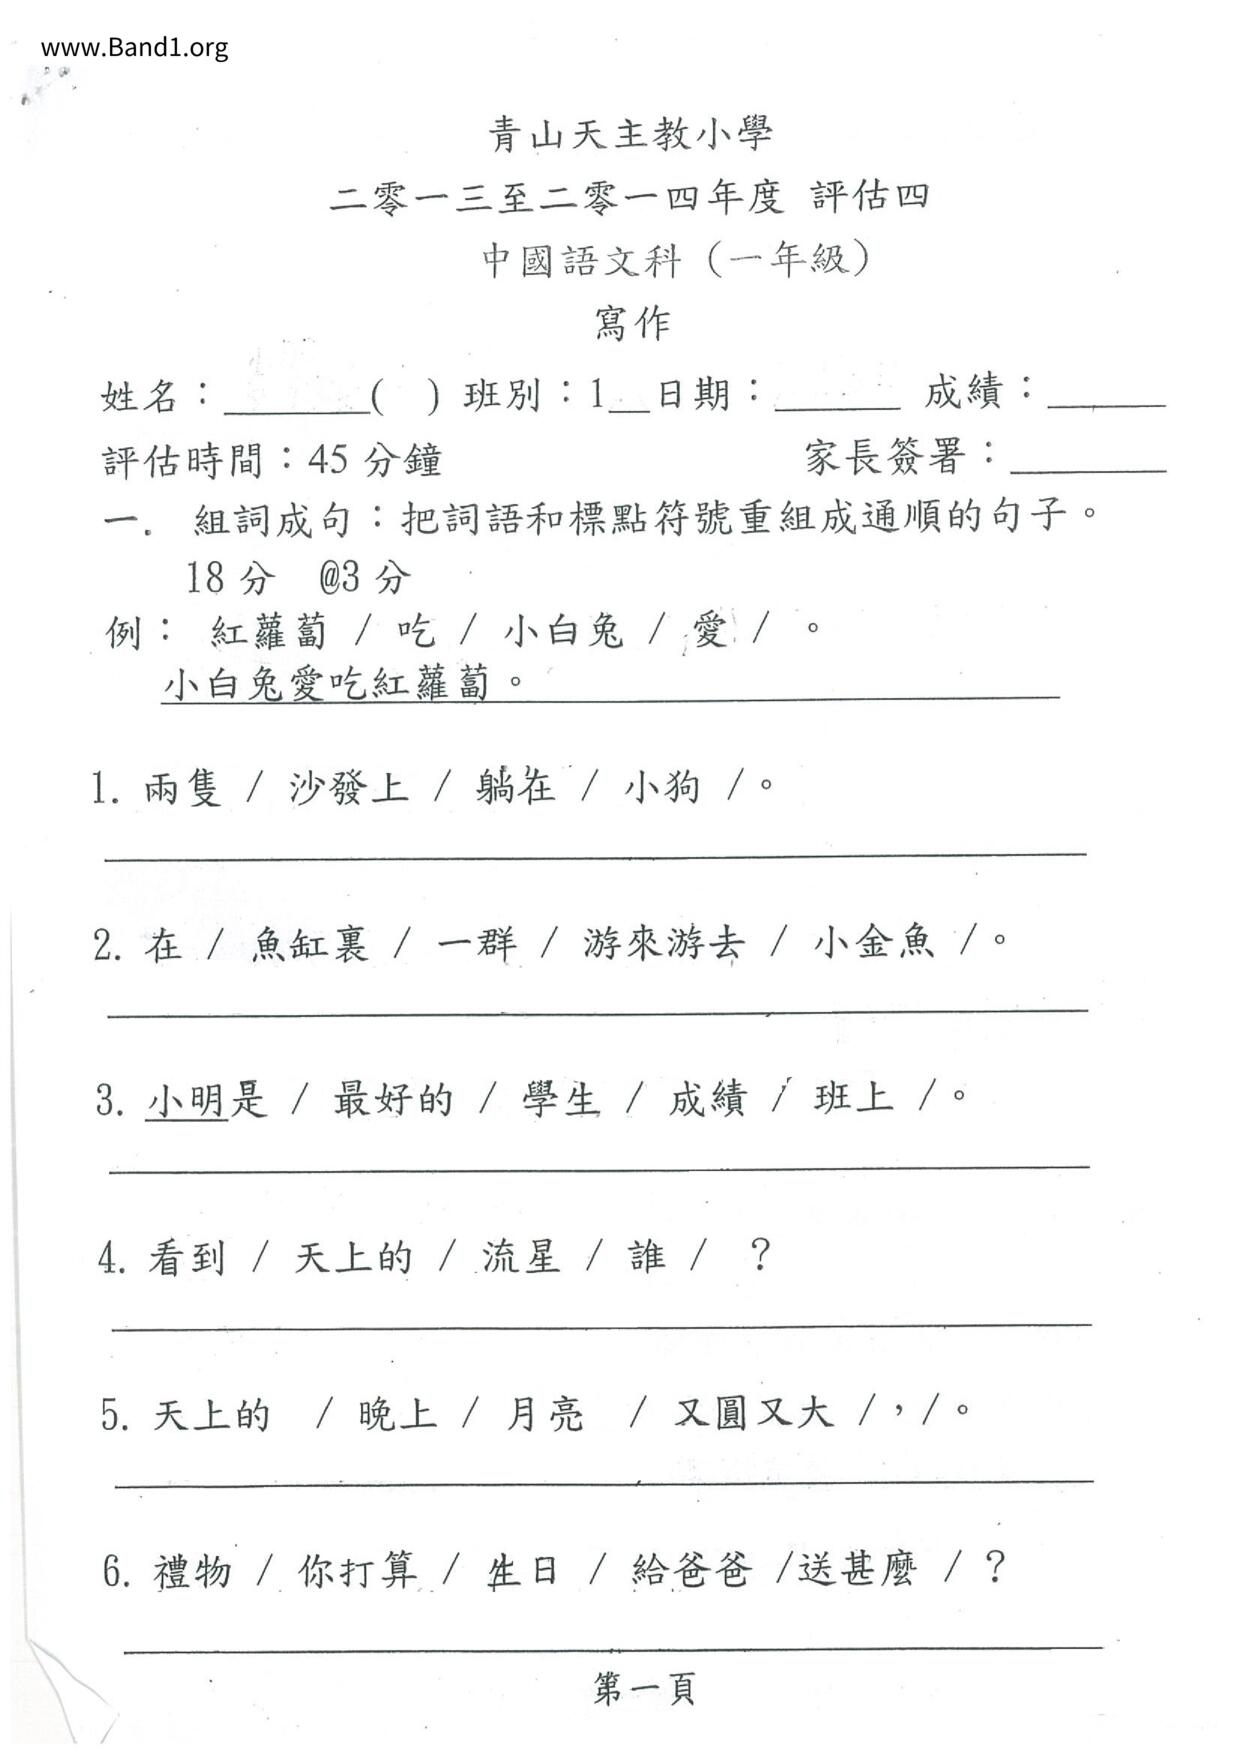 www.Band1.org
青山天主教小學
二零一三至二零一四年度 評估四
中國語文科（一年級）
寫作
姓名：_______( ) 班別：1__日期：______ 成績：______
評估時間：45 分鐘 家長簽署：________
一. 組詞成句：把詞語和標點符號重組成通順的句子。
18 分 @3 分
例： 紅蘿蔔 / 吃 / 小白兔 / 愛 / 。
小白兔愛吃紅蘿蔔。
1. 兩隻 / 沙發上 / 躺在 / 小狗 /。
2. 在 / 魚缸裏 / 一群 / 游來游去 / 小金魚 /。
3. 小明是 / 最好的 / 學生 / 成績 / 班上 /。
4. 看到 / 天上的 / 流星 / 誰 / ？
5. 天上的 / 晚上 / 月亮 / 又圓又大 /，/。
6. 禮物 / 你打算 / 生日 / 給爸爸 /送甚麼 / ？
第一頁